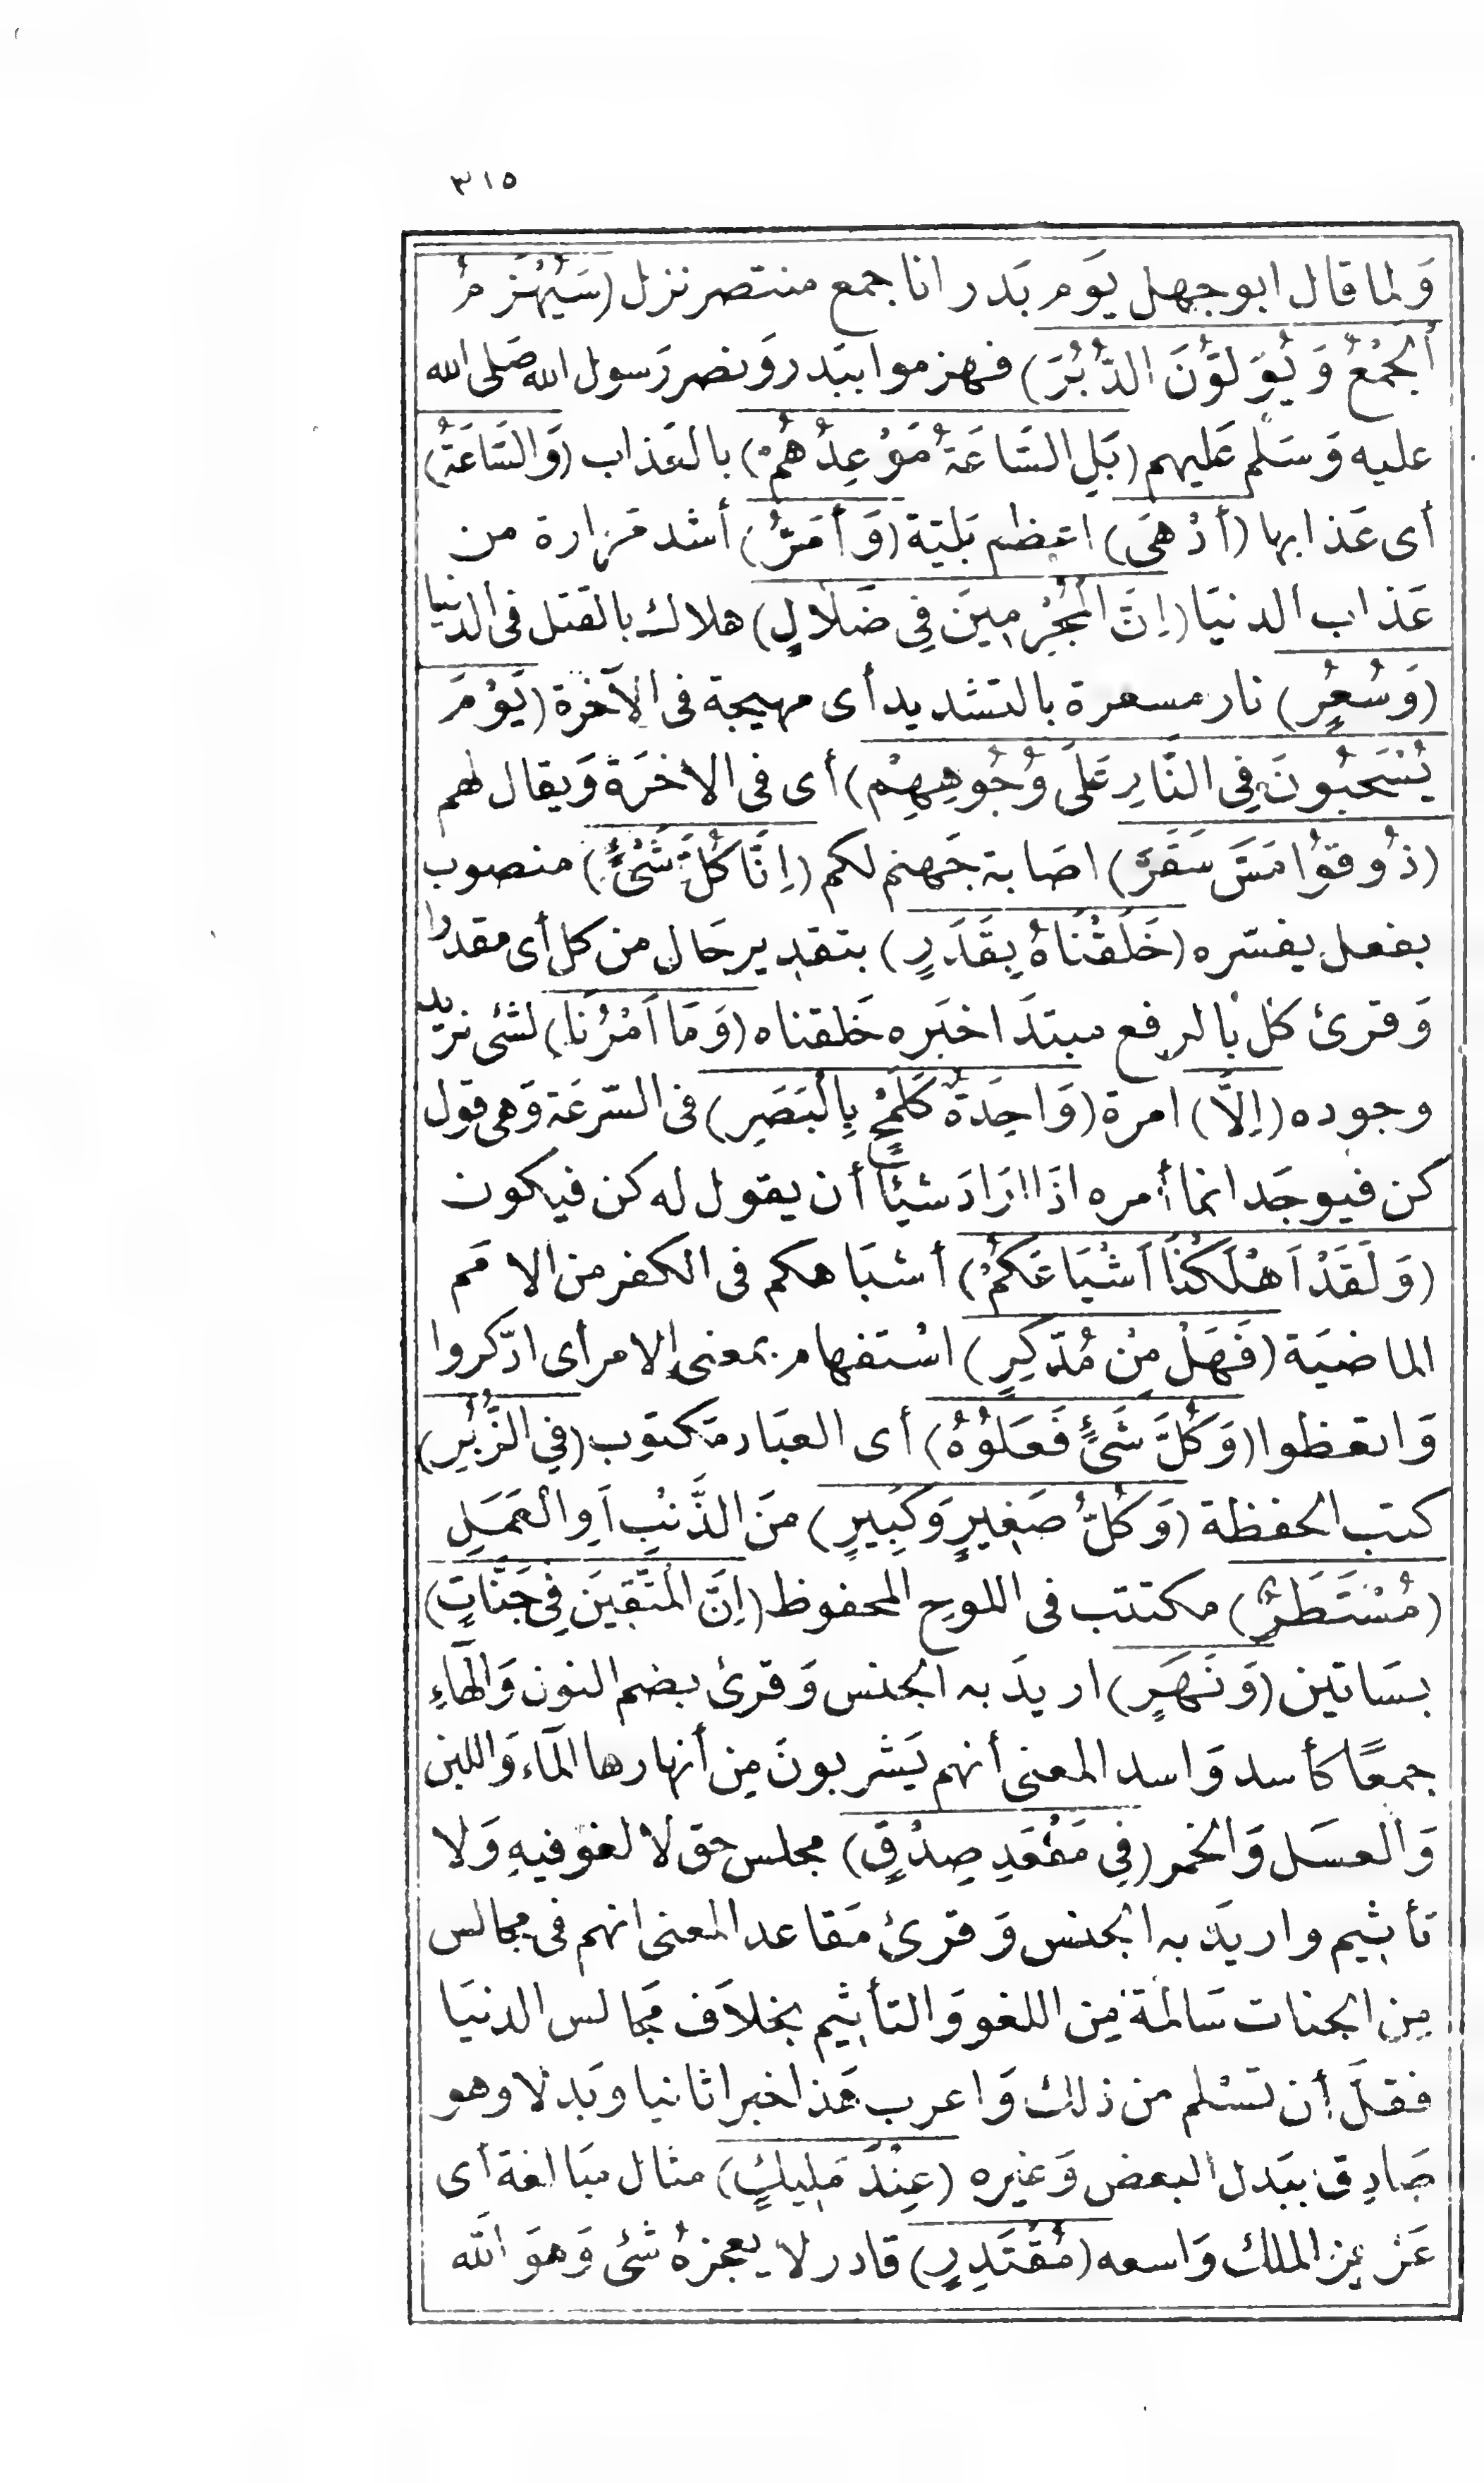 ٣١٥
وَلما قال ابو جهل يَوم بَدر انا جمع منتصر نزل (سَيُهْزَمُ
الْجَمْعُ وَيُوَلُّونَ الدُّبُرَ) فهزموا ببَدر وَنصر رَسول الله صَلى الله
عليه وَسَلم عَليهم (بَلِ السَّاعَةُ مَوْعِدُهُمْ) بالعَذاب (وَالسَّاعَةُ)
أى عَذابها (أَدْهَى) اعظم بَلية (وَأَمَرُّ) أشد مَرارة من
عَذاب الدنيَا (اِنَّ الْمُجْرِمِينَ فِى ضَلَالٍ) هلاك بالقتل فى الدنيا
(وَسُعُرٍ) نار مسعرة بالتشديد أى مهيجة فى الآخرة (يَوْمَ
يُسْحَبُونَ فِى النَّارِ عَلَى وُجُوهِهِمْ) أى فى الاخرَة وَيقال لهم
(ذُوقوُا مَسَّ سَقَرَ) اصَابة جَهنم لكم (اِنَّا كُلَّ شَىْءٍ) منصوب
بفعل يفسّره (خَلَقْنَاهُ بِقَدَرٍ) بتقدير حَال من كل أى مقدرا
وَقرئ كل بالرفع مبتدَا خبَره خَلقناه (وَمَا اَمْرُنَا) لشئ نريد
وجوده (اِلَّا) امرة (وَاحِدَةٌ كَلَمْحٍ بِالْبَصَرِ) فى السّرعَة وَهى قول
كن فيوجَد انما أمره اذَا ارَادَ شيئا أن يقول له كن فيكون
(وَلَقَدْ اَهْلَكْنَا اَشْيَاعَكُمْ) أشبَاهكم فى الكفر من الامَم
الماضيَة (فَهَلْ مِنْ مُدَّكِرٍ) اسْتفهام بمعنى الامر أى ادّكروا
وَاتعظوا (وَكُلُّ شَىْءٍ فَعَلُوُهُ) أى العبَاد مَكتوب (فِي الزُّبُرِ)
كتب الحفظة (وَكُلُّ صَغِيرٍ وَكَبِيرٍ) مِنَ الذَّنْبِ اَوِ الْعَمَلِ
(مُسْتَطَرٌ) مكتتب فى اللوح المحفوظ (اِنَّ الْمُتَّقِينَ فِى جَنَّاتٍ)
بسَاتين (وَنَهَرٍ) اريدَ به الجنس وَقرئ بضم النون وَالْهَاءِ
جمعًا كأسد وَاسد المعنى أنهم يَشربونَ مِن أنهارها المآء وَاللبن
وَالعسَل وَالخمر (فِى مَقْعَدِ صِدْقٍ) مجلس حق لا لغو فيهِ وَلا
تأثيم واريدَ به الجنس وَقرئ مَقاعد المعنى انهم فى مجالس
مِن الجنات سَالمة مِن اللغو وَالتأثيم بخلاَف مجَالس الدنيَا
فقلَّ أن تسْلم من ذلك وَاعرب هَذا خبرا ثانيا وبَدلا وهو
صَادِق ببَدل البعض وَغيره (عِنْدَ مَلِيكٍ) مثال مبَالغة أى
عَزيز الملك وَاسعه (مُقْتَدِرٍ) قادر لا يعجزهُ شئ وَهوَ الله